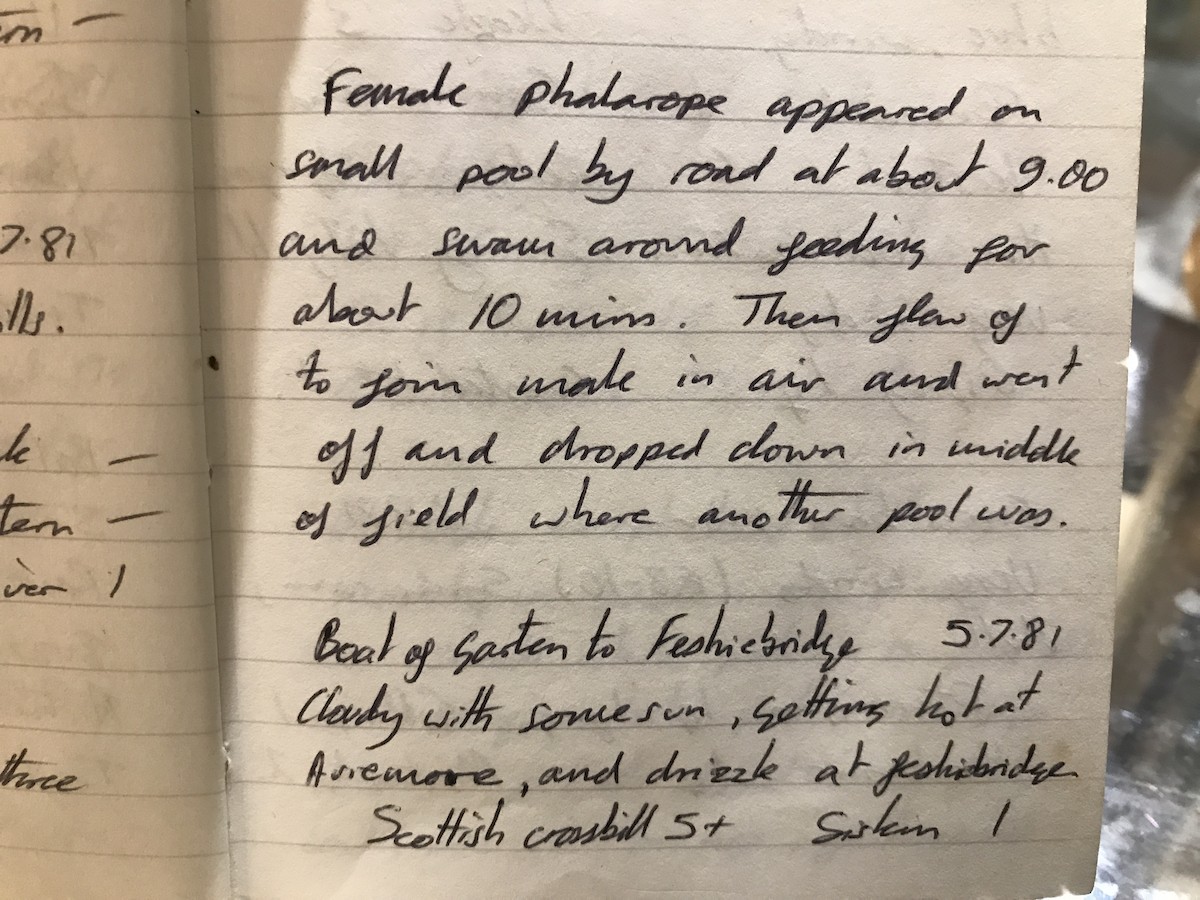 7.81
ills.
tern —
three
Female phalarope appeared on
small pool by road at about 9.00
and swam around feeding for
about 10 mins. Then flew of
to join male in air and went
off and dropped down in middle
of field where another pool was.
Boat of Garten to Feshiebridge 5.7.81
Cloudy with some sun, getting hot at
Aviemore, and drizzle at feshiebridge
Scottish crossbill 5+ Siskin 1